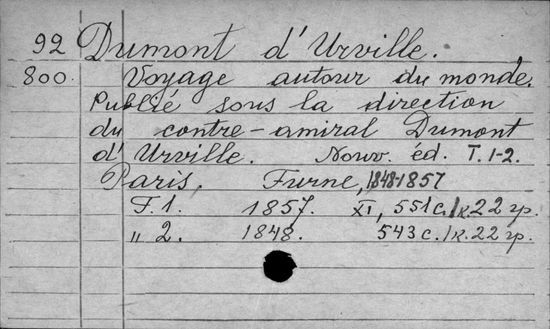 92 Dumont d'Urville.
800. Voyage autour du monde.
Publié sous la direction
du contre-amiral Dumont
d'Urville. Nouv. éd. T. 1-2.
Paris, Furne, 1848-1857
T. 1. 1857. XI, 551 c. / к. 22 гр.
" 2. 1848. 543 c. / к. 22 гр.